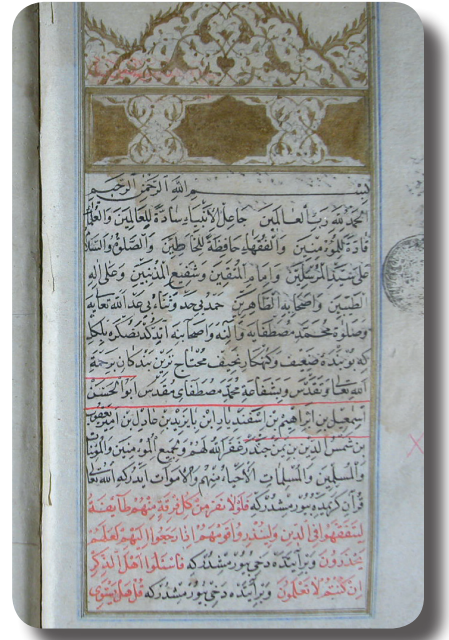 بسم الله الرحمن الرحيم
الحمد لله رب العالمين جاعل الأنبياء سادة للعالمين والعلماء
قادة للمؤمنين والفقهاء حافظة للخاطئين والصلوة والسلام
على سيد المرسلين وامام المتقين وشفيع المذنبين وعلى اله
الطيبين واصحابه الطاهرين حمد بى حد وثناء بى عد الله تعالى يه
وصلوة محمد مصطفايه وآلينه واصحابنه اتدكدنصكره بلكل
كه بو بنده ضعيف وكنهكار نحيف محتاج ترين بندكان برحمة
الله تعالى وتقدس وبشفاعة محمد مصطفاى مقدس ابو الحسن
اسمعيل بن ابراهيم بن اسفنديار بن بايزيد بن عادل بن امير يعقوب
بن شمس الدين بن جندر غفر الله لهم ولجميع المؤمنين والمؤمنات
والمسلمين والمسلمات الأحياء منهم والاموات ايدر كه الله تعالى
قرآن كريمده بيورمشدر كه فلولا نفر من كل فرقة منهم طائفة
ليتفقهوا في الدين ولينذروا قومهم اذا رجعوا اليهم لعلهم
يحذرون وبر آيتده دخى بيورمشدر كه فاسئلوا اهل الذكر
ان كنتم لا تعلمون وبر آيتده دخى بيورمشدر كه قل هل يستوى